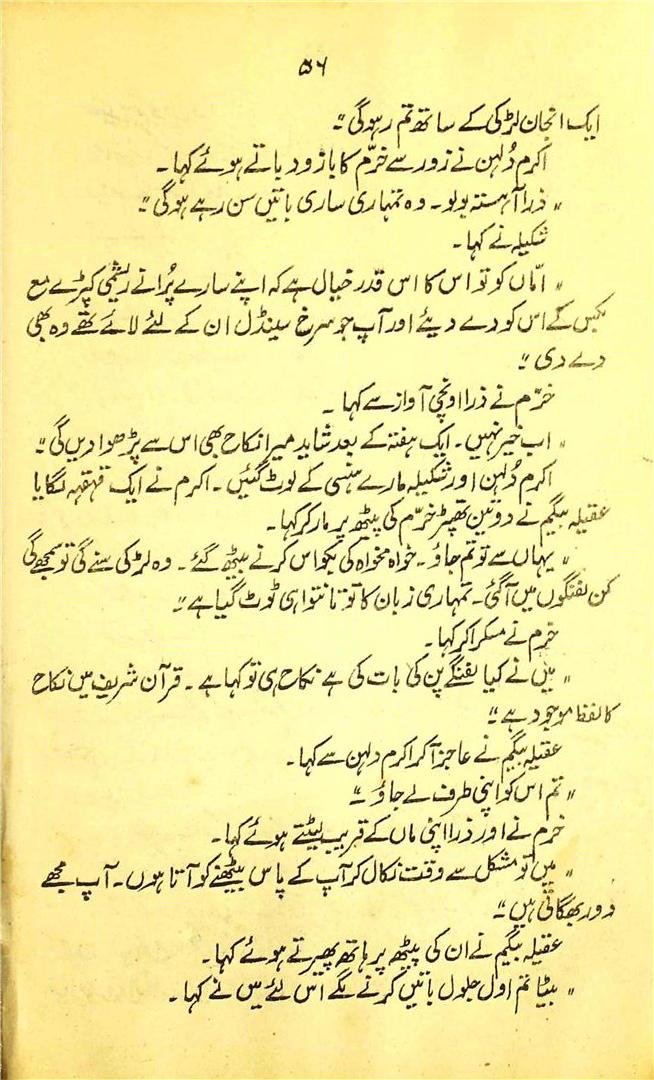 ۵۶
ایک انجان لڑکی کے ساتھ تم رہو گی"۔
اکرم دُلہن نے زور سے خرّم کا بازو دباتے ہوئے کہا۔
"ذرا آہستہ بولو۔ وہ تمہاری ساری باتیں سن رہے ہوگی"۔
شکیلہ نے کہا۔
"امّاں کو تو اس کا اس قدر خیال ہے کہ اپنے سارے پُرانے ریشمی کپڑے مع
بکس کے اس کو دے دیئے اور آپ جو سرخ سینڈل ان کے لئے لائے تھے وہ بھی
دے دی"۔
خرّم نے ذرا اونچی آواز سے کہا۔
"اب خیر نہیں۔ ایک ہفتہ کے بعد شاید میرا نکاح بھی اس سے پڑھوا دیں گی"۔
اکرم دُلہن اور شکیلہ مارے ہنسی کے لوٹ گئیں۔ اکرم نے ایک قہقہہ لگایا
عقیلہ بیگم نے دو تین تھپڑ خرّم کی پیٹھ پر مار کر کہا۔
"یہاں سے تو تم جاؤ۔ خواہ مخواہ کی بکواس کرنے بیٹھ گئے۔ وہ لڑکی سنے گی تو سمجھے گی
کن لفنگوں میں آ گئی۔ تمہاری زبان کا تو تانتوا ہی ٹوٹ گیا ہے"۔
خرم نے مسکرا کر کہا۔
"میں نے کیا لفنگے پن کی بات کی ہے نکاح ہی تو کہا ہے۔ قرآن شریف میں نکاح
کا لفظ موجود ہے"۔
عقیلہ بیگم نے عاجز آ کر اکرم دلہن سے کہا۔
"تم اس کو اپنی طرف لے جاؤ"۔
خرم نے اور ذرا اپنی ماں کے قریب لیٹتے ہوئے کہا۔
"میں تو مشکل سے وقت نکال کر آپ کے پاس بیٹھنے کو آتا ہوں۔ آپ مجھے
دور بھگاتی ہیں"۔
عقیلہ بیگم نے ان کی پیٹھ پر ہاتھ پھیرتے ہوئے کہا۔
"بیٹا تم اول جلول باتیں کرنے لگے اس لئے میں نے کہا۔